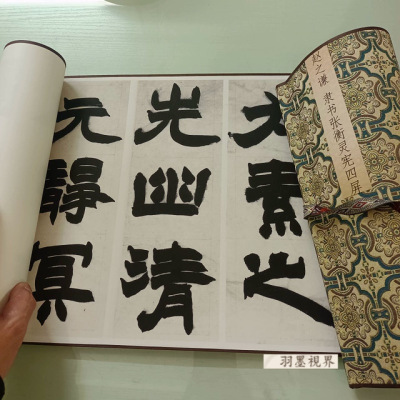 赵之谦 隶书张衡灵宪四屏
太素之
先幽清
元靜冥
羽墨视界